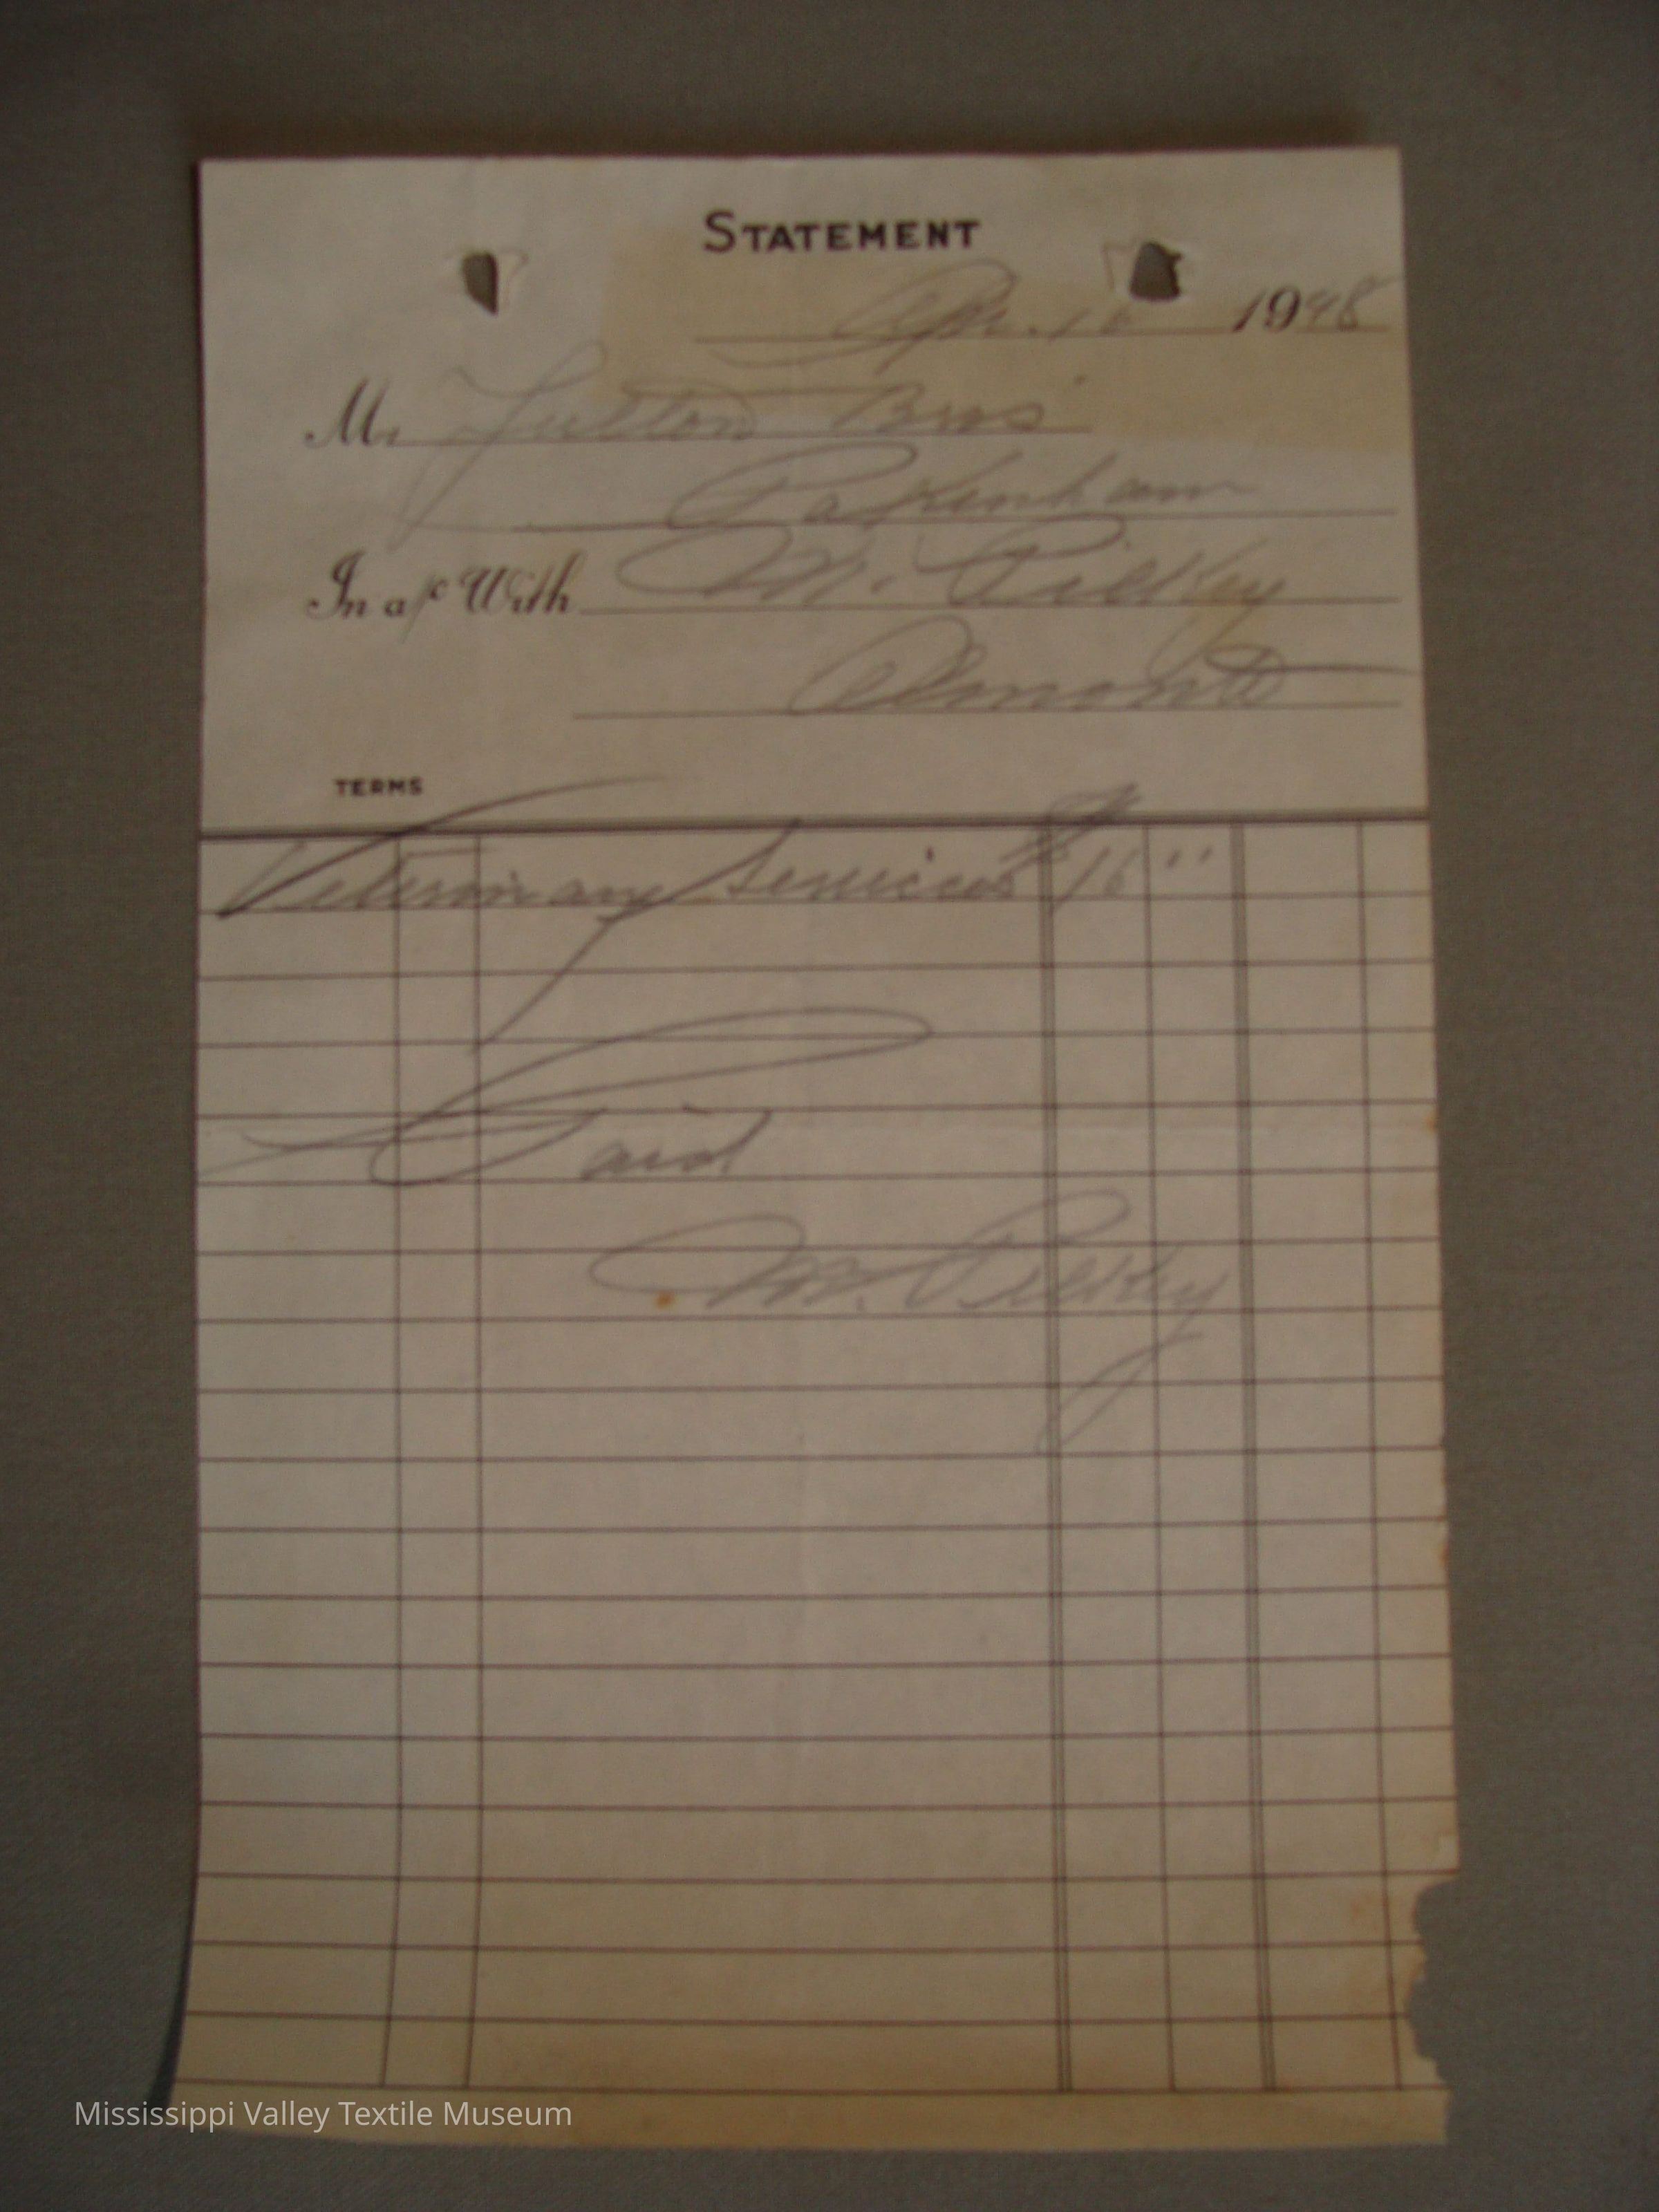 STATEMENT
Apr. 16 1948
Mr Fulton Bros
Pakenham
In a/c With M. Pilkey
Almonte
TERMS
Veterinary Services $16 "
Paid
M. Pilkey
Mississippi Valley Textile Museum